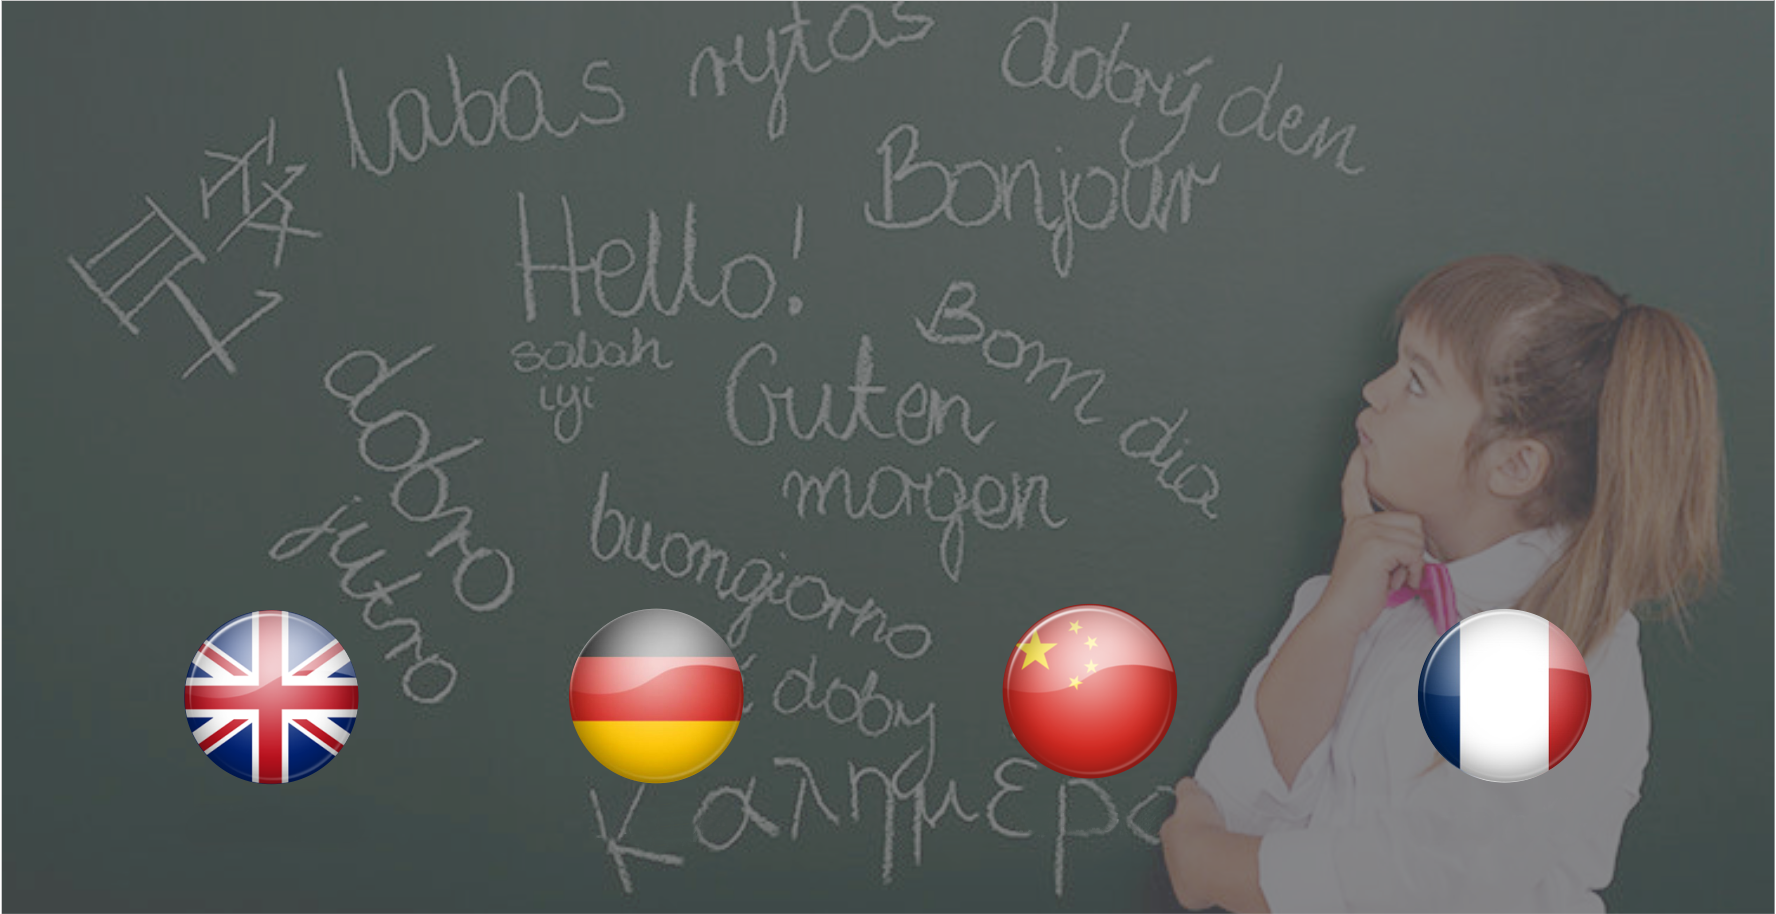 labas rytas
dobrý den
早安
Bonjour
Hello!
sabah
iyi
Bom dia
Guten
morgen
dobro
jutro
buongiorno
doby
Καλημέρα